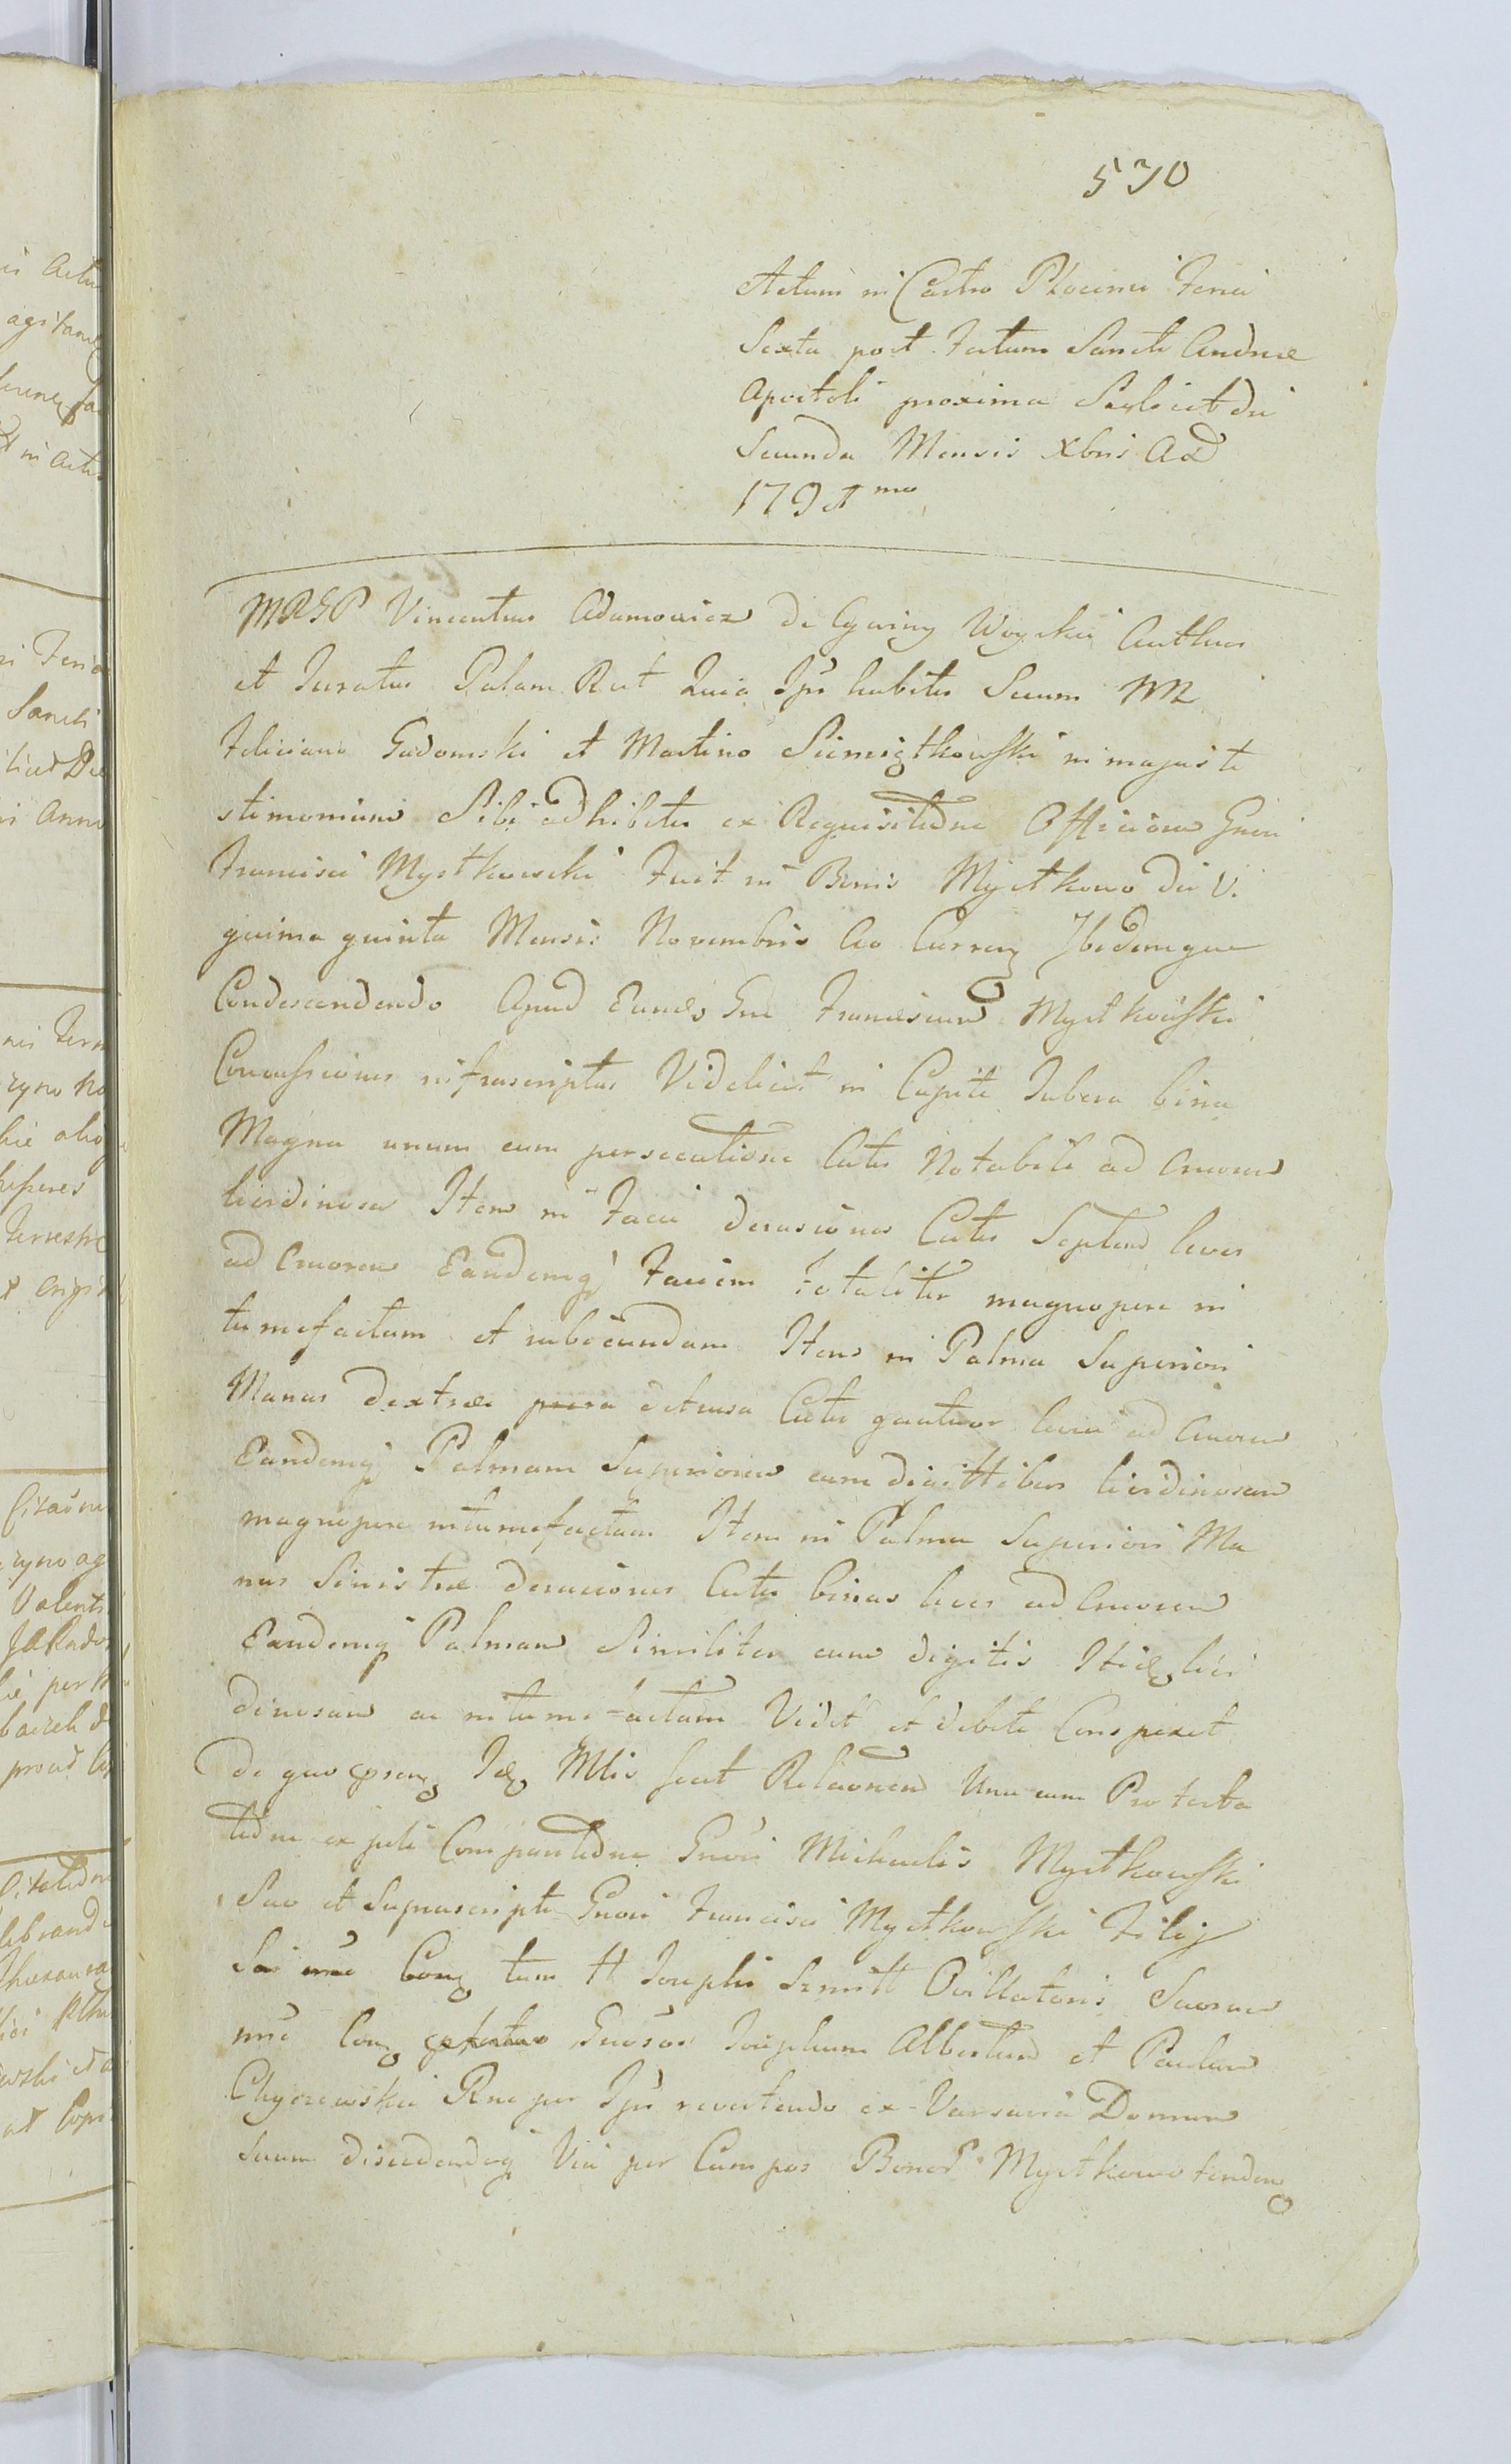 570
Actum in Castro Plocensi Feria
Sexta post Festum Sancti Andreæ
Apostoli proxima Scilicet die
Secunda Mensis Xbris AD
179 mo
MRGP Vincentius Adamowicz de Woyskie Authus
et Juratus Palam Rt Quia Ipse habitis Secum NN
Feliciano Gadomski et Martino Siemiątkowski in majus te
stimonium Sibi adhibitis ex Requisitione Officiosa Gnosi
Francisci Mystkowski Fuit in Bonis Mystkowo die Vi
gesima quinta Mensis Novembris Ao Curren Ibidemque
Condescendendo Apud Eund Gne Franciscum Mystkowski
Concussiones infrascriptas Videlicet in Capite Tubera bina
Magna unum cum persecatione Cutis Notabili ad Cruorem
livida Item in Facie derasiones Cutis Septem leves
ad Cruorem Eandemq Faciem totaliter magnopere in
tumefactam et rubicundam Item in Palma Superiori
Manus dextræ detrusa Cutis quatuor levia ad Cruorem
Eandemq Palmam Superiorem cum digittibus livi
magnopere intumefactam Item in Palma Superiori Ma
nus Sinistræ derasiones Cutis binas leves ad Cruorem
Eandemq Palmam Similiter cum digitis livi
dinosam ac intumefactam Vidit et debite Conspexit
de quo psens Mlis fecit Relaonem Una cum Protesta
tione ex parte Comparitione Gnosi Michaelis Mystkowski
Suo et Suprascripti Gnosi Francisci Mystkowski Filij
Sui nne tum H Josephi Szmitt Suorum
nne Gnosos Josephum Albertum et Paulum
Chyczewskie Rne per Ipse revertendo ex Varsavia Domum
Suam discedendoq Via per Campos Bonor Mystkowo tenden